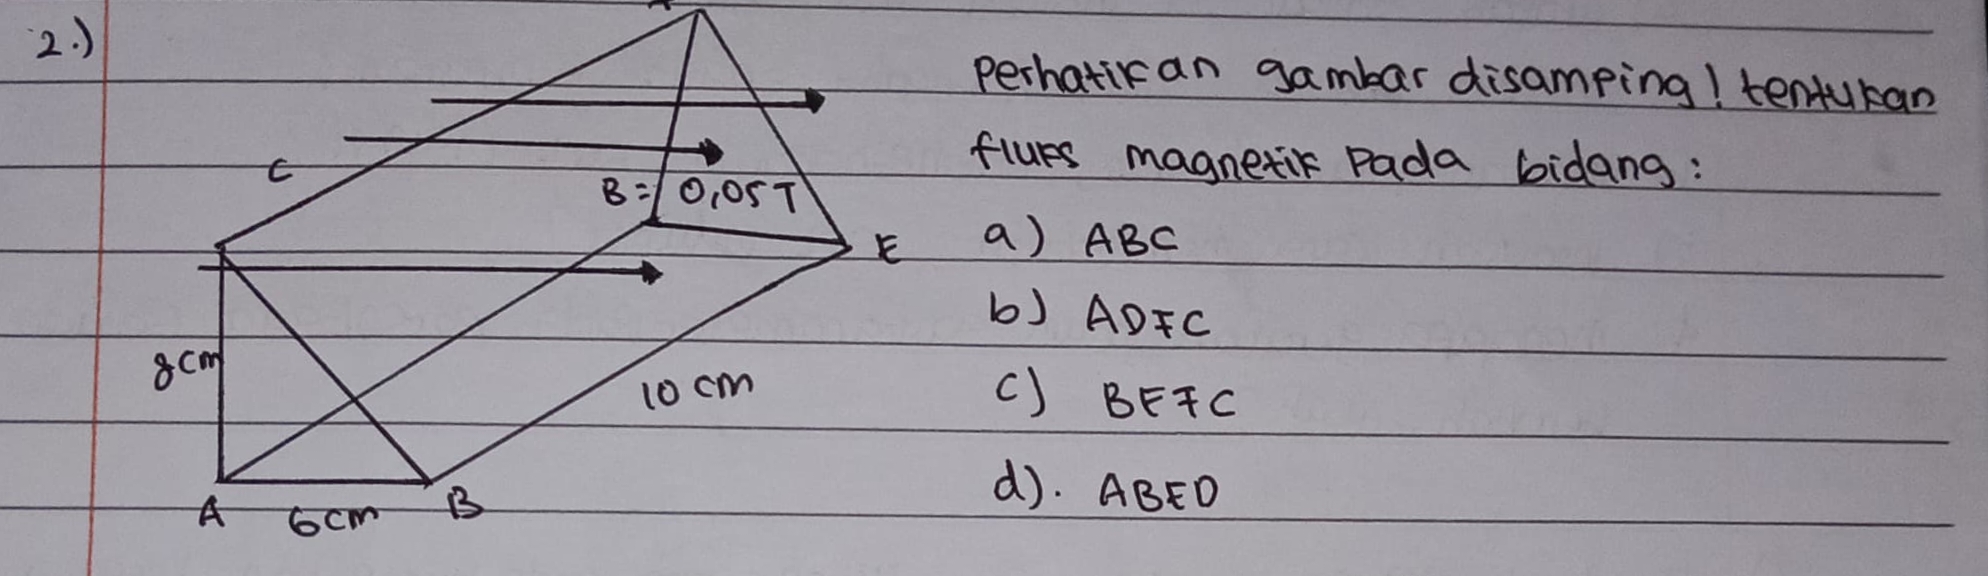 2.)
Perhatikan gambar disamping! tentukan
fluks magnetik Pada bidang:
C
B = 0,05 T
E
a) ABC
b) ADFC
8cm
10 cm
c) BEFC
d). ABED
A 6cm B